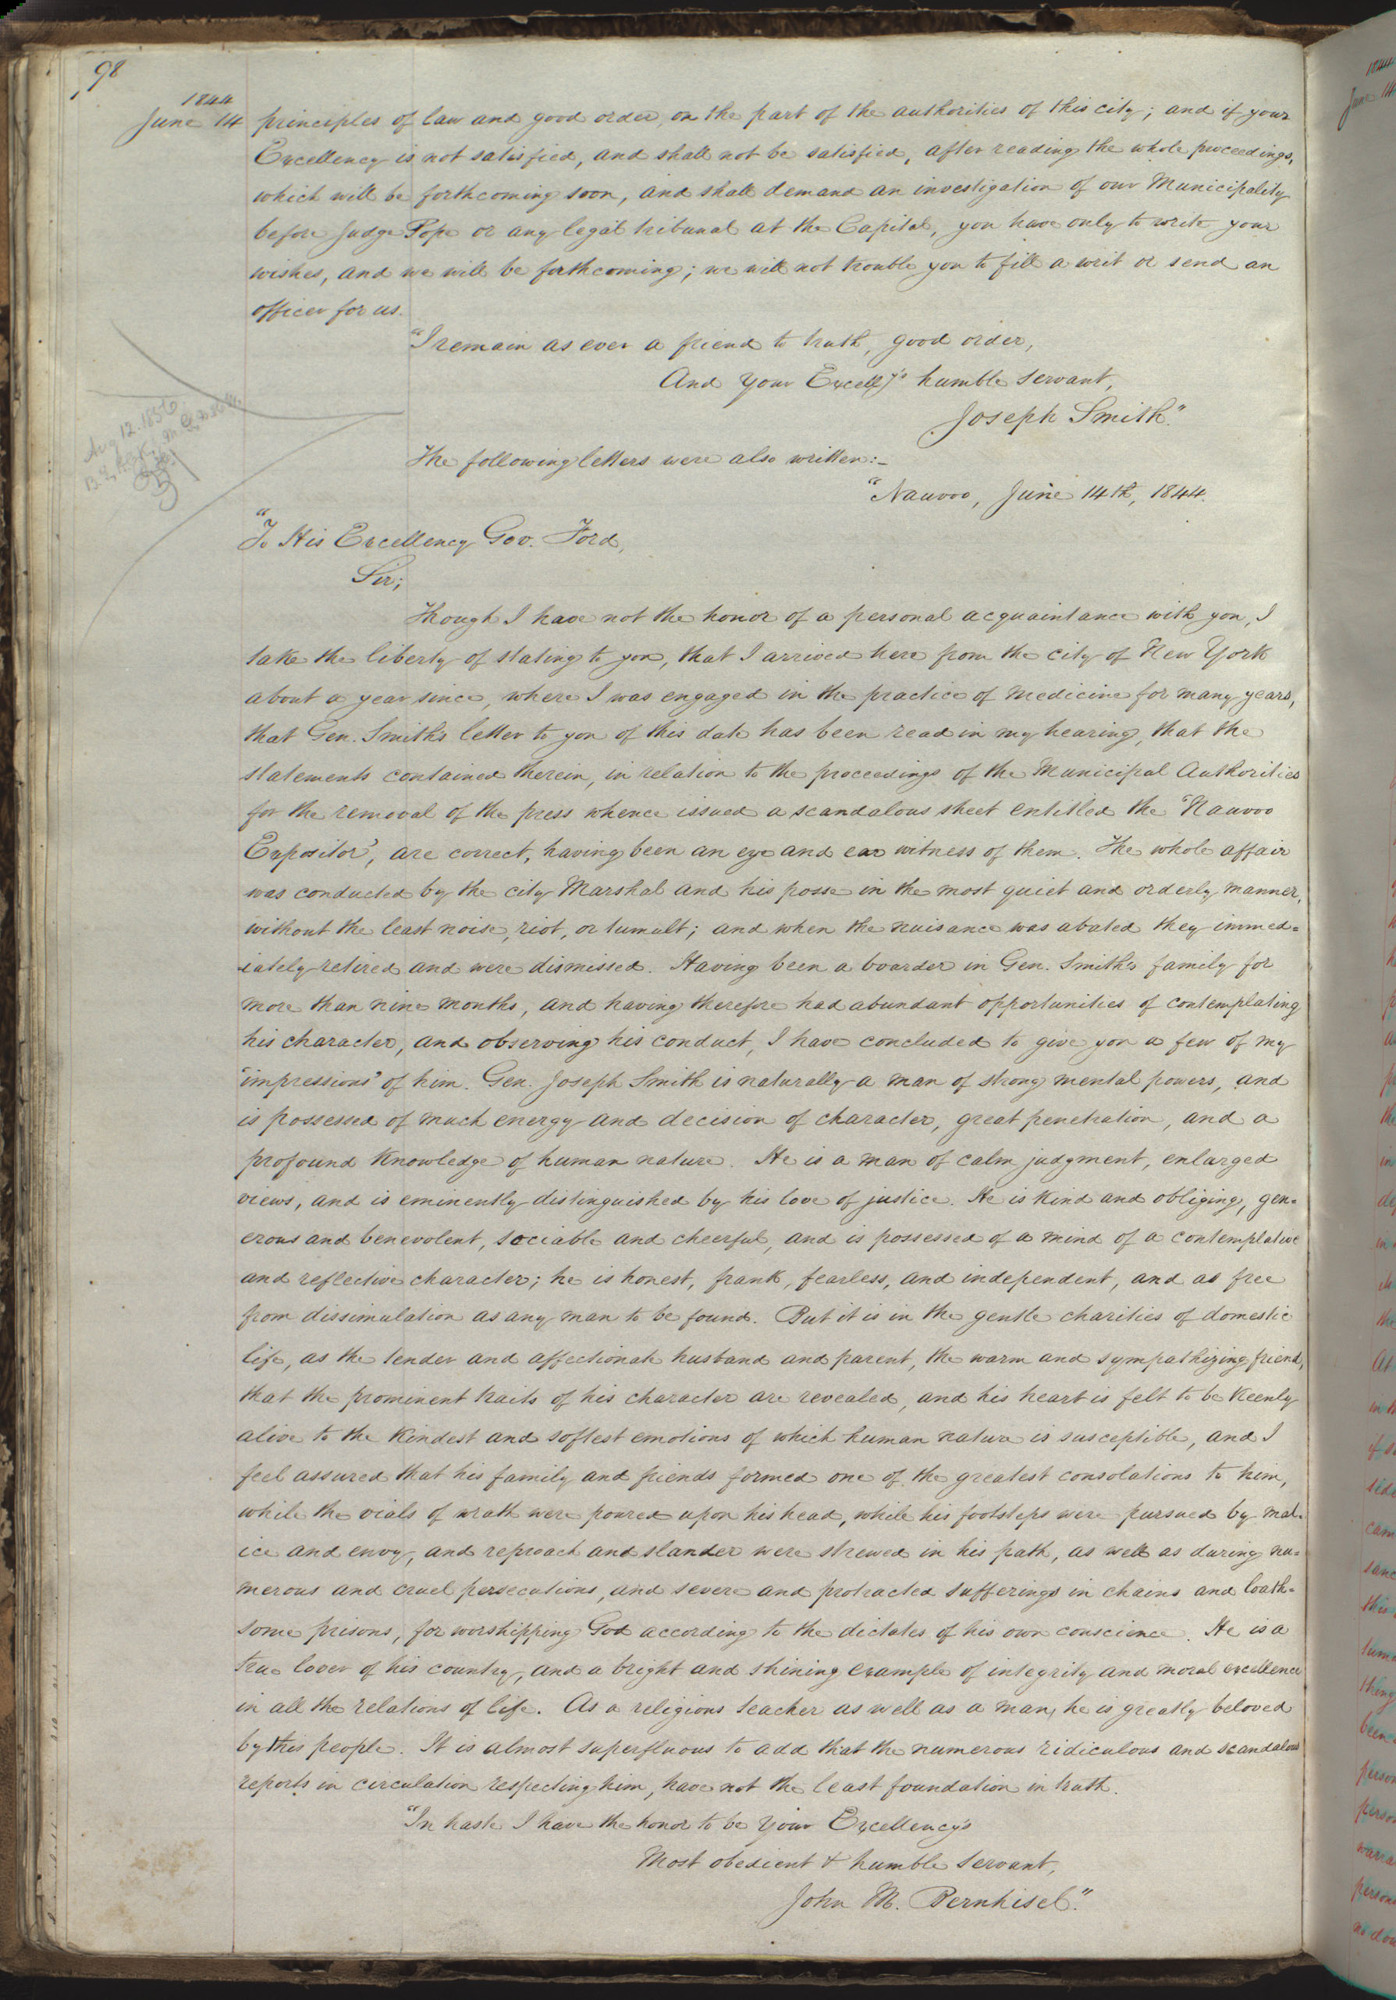 98
1844
June 14 principles of law and good order, on the part of the authorities of this city; and if your
Excellency is not satisfied, and shall not be satisfied, after reading the whole proceedings,
which will be forthcoming soon, and shall demand an investigation of our Municipality
before Judge Pope or any legal tribunal at the Capitol, you have only to write your
wishes, and we will be forthcoming; we will not trouble you to fill a writ or send an
officer for us.
"I remain as ever a friend to truth, good order,
And your Excelly's humble servant,
Joseph Smith."
Aug 12. 1856
The following letters were also written:-
"Nauvoo, June 14th, 1844.
"To His Excellency Gov. Ford,
Sir;
Though I have not the honor of a personal acquaintance with you, I
take the liberty of stating to you, that I arrived here from the city of New York
about a year since, where I was engaged in the practice of medicine for many years,
that Gen. Smith's letter to you of this date has been read in my hearing, that the
statements contained therein, in relation to the proceedings of the Municipal Authorities
for the removal of the press whence issued a scandalous sheet entitled the 'Nauvoo
Expositor', are correct, having been an eye and ear witness of them. The whole affair
was conducted by the city Marshal and his posse in the most quiet and orderly manner,
without the least noise, riot, or tumult; and when the nuisance was abated they immed=
iately retired and were dismissed. Having been a boarder in Gen. Smith's family for
more than nine months, and having therefore had abundant opportunities of contemplating
his character, and observing his conduct, I have concluded to give you a few of my
'impressions' of him. Gen. Joseph Smith is naturally a man of strong mental powers, and
is possessed of much energy and decision of character, great penetration, and a
profound knowledge of human nature. He is a man of calm judgment, enlarged
views, and is eminently distinguished by his love of justice. He is kind and obliging, gen=
erous and benevolent, sociable and cheerful, and is possessed of a mind of a contemplative
and reflective character; he is honest, frank, fearless, and independent, and as free
from dissimulation as any man to be found. But it is in the gentle charities of domestic
life, as the tender and affectionate husband and parent, the warm and sympathizing friend,
that the prominent traits of his character are revealed, and his heart is felt to be keenly
alive to the kindest and softest emotions of which human nature is susceptible, and I
feel assured that his family and friends formed one of the greatest consolations to him,
while the vials of wrath were poured upon his head, while his footsteps were pursued by mal=
ice and envy, and reproach and slander were strewed in his path, as well as during nu=
merous and cruel persecutions, and severe and protracted sufferings in chains and loath=
some prisons, for worshipping God according to the dictates of his own conscience. He is a
true lover of his country, and a bright and shining example of integrity and moral excellence
in all the relations of life. As a religious teacher as well as a man, he is greatly beloved
by this people. It is almost superfluous to add that the numerous ridiculous and scandalous
reports in circulation respecting him, have not the least foundation in truth.
"In haste I have the honor to be your Excellency's
Most obedient & humble servant,
John M. Bernhisel."